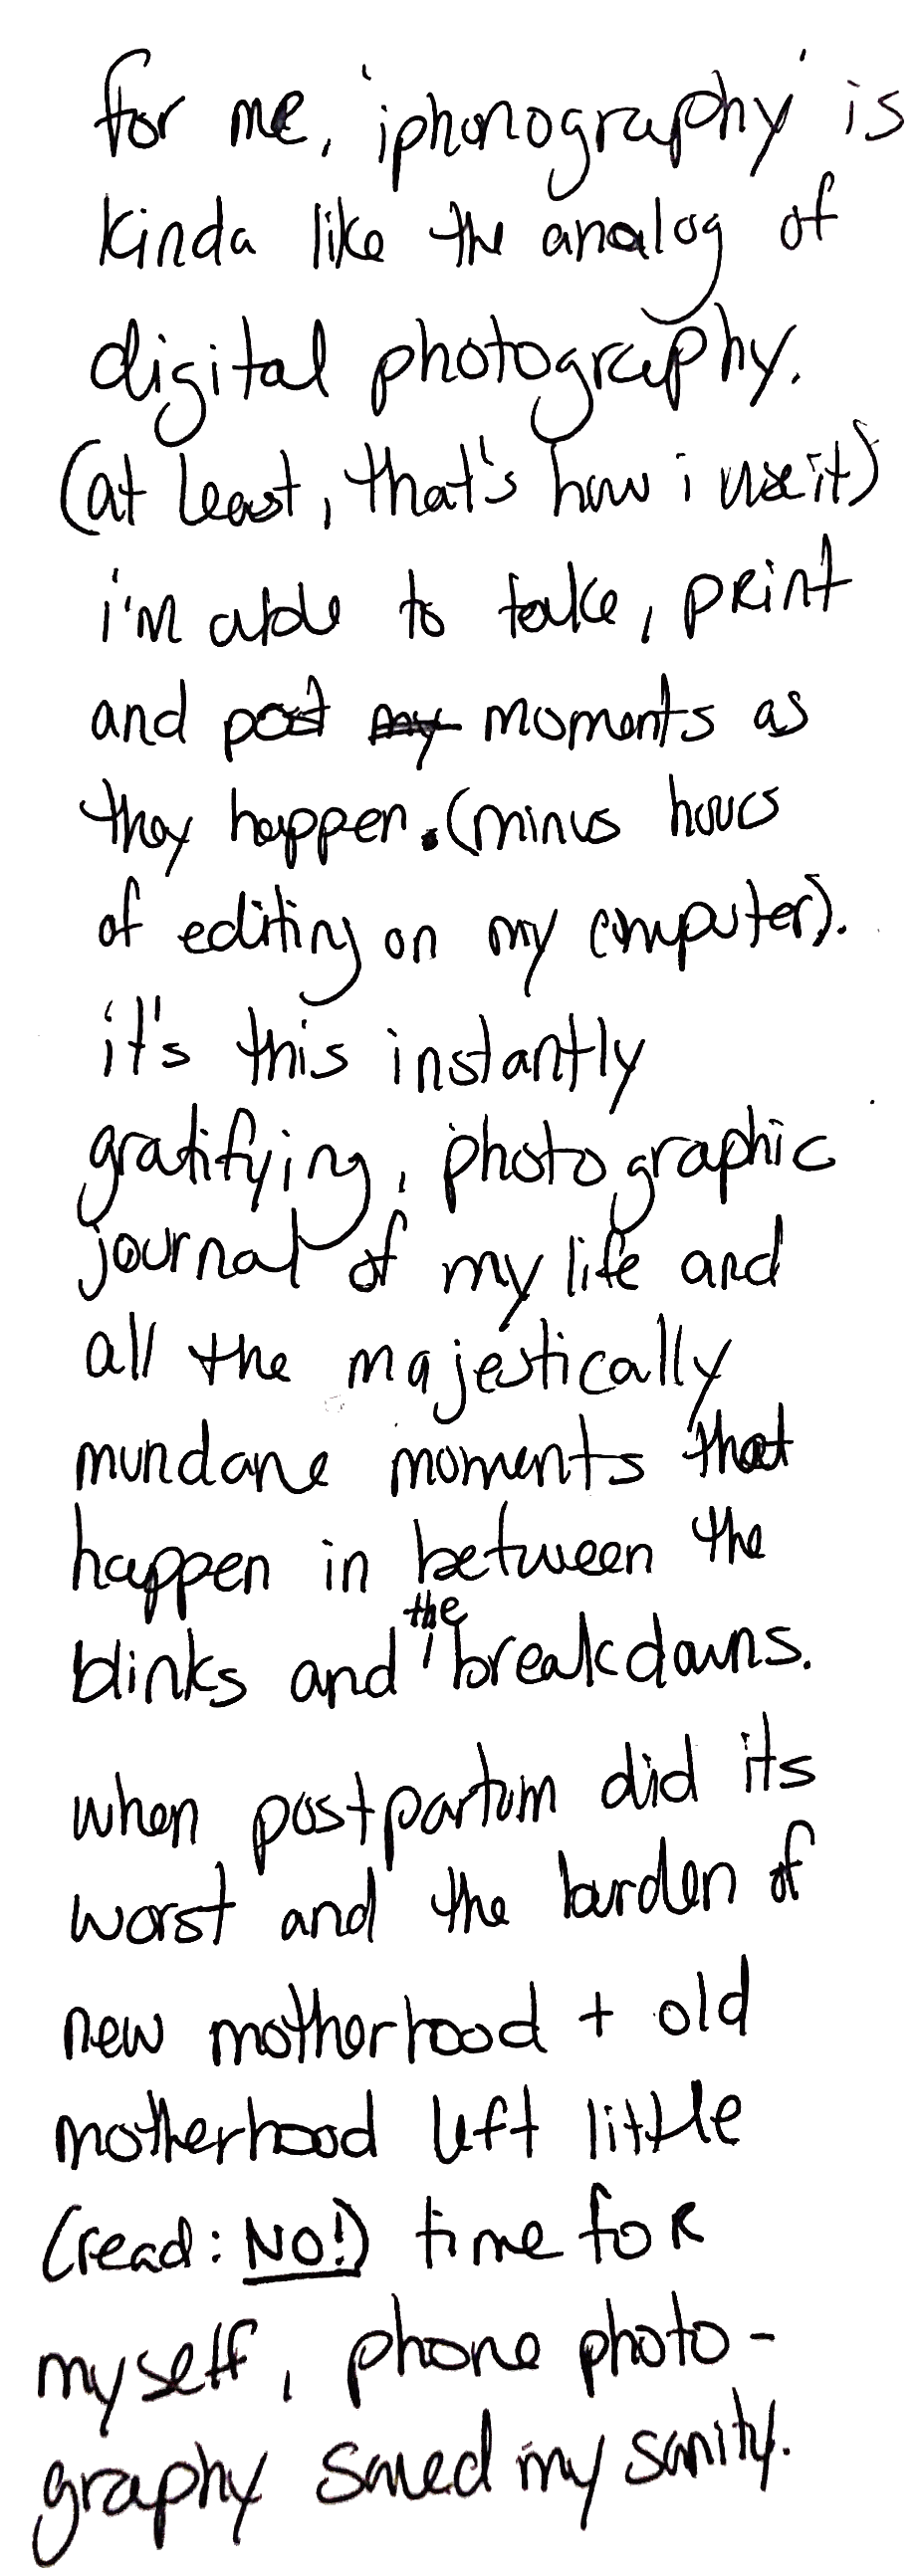 for me, 'iphonography' is
kinda like the analog of
digital photography.
(at least, that's how i use it)
i'm able to take, print
and post my moments as
they happen. (minus hours
of editing on my computer).
it's this instantly
gratifying, photographic
journal of my life and
all the majestically
mundane moments that
happen in between the
blinks and the breakdowns.
when postpartum did its
worst and the burden of
new motherhood + old
motherhood left little
(read: NO!) time for
myself, phone photo-
graphy saved my sanity.